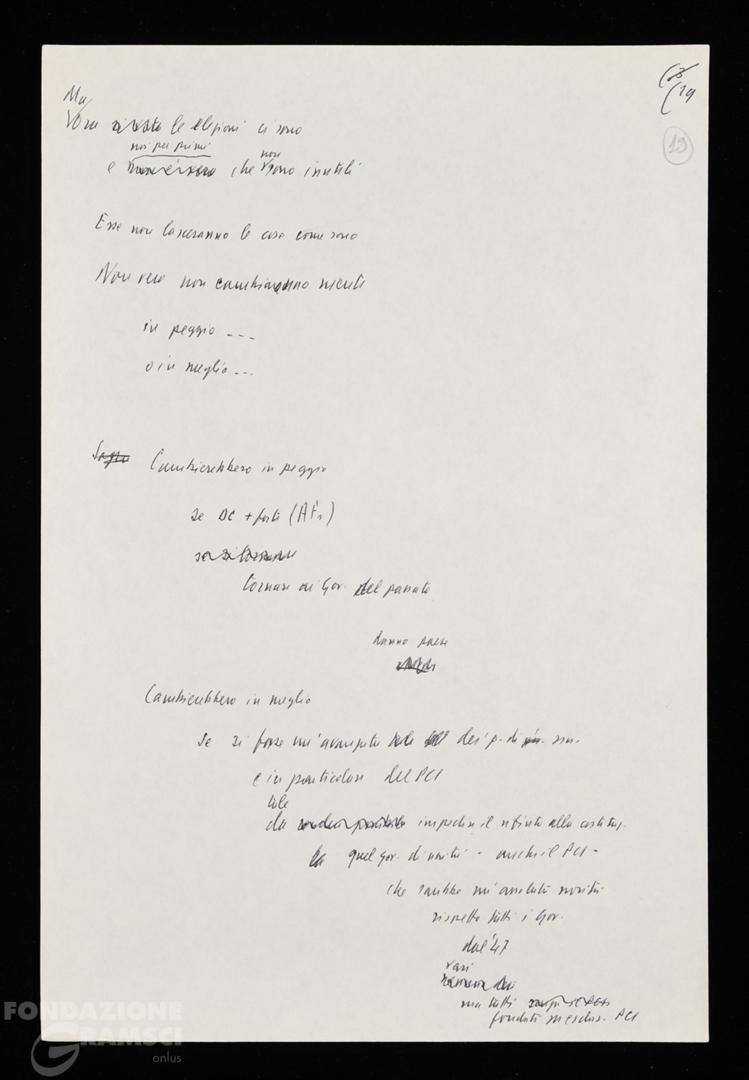 19
19
Ma
Ora le elezioni ci sono
noi per primi
e che non sono inutili
Esse non lasceranno le cose come sono
Non vero non cambieranno niente
in peggio ---
o in meglio ---
Cambierebbero in peggio
se DC + forte (AF)
tornare ai Gov. del passato
danno paese
Cambierebbero in meglio
se si fosse un'avanzata dei p. di sin.
e in particolare del PCI
tale
da impedire il rifiuto alla costituz.
quel gov. di unità - anche il PCI -
che sarebbe un'assoluta novità
rispetto tutti i Gov.
dal '47
vari
ma tutti
fondati su esclus. PCI
FONDAZIONE
GRAMSCI
onlus